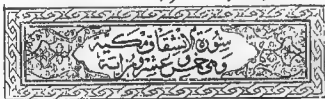 سورة الانشقاق مكية
وهى خمس وعشرون اية